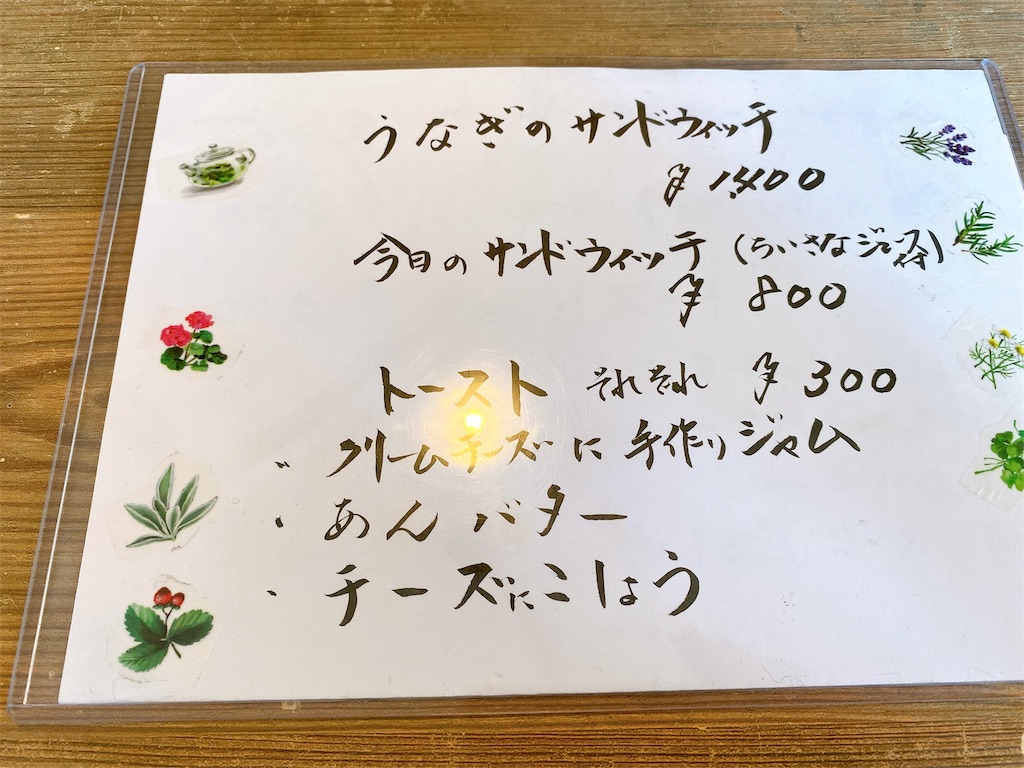 うなぎのサンドウィッチ
¥ 1,400
今日のサンドウィッチ (ちいさなジュース付)
¥ 800
トースト それぞれ ¥ 300
・ クリームチーズに手作りジャム
・ あんバター
・ チーズにこしょう